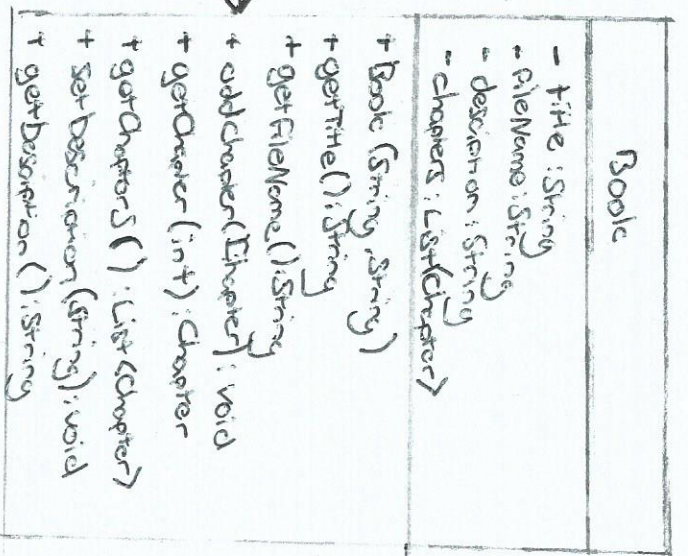 Book
- title : String
- fileName : String
- desciption : String
- chapters : List<Chapter>
+ Book (String, String)
+ getTitle() : String
+ getFileName() : String
+ addChapter(Chapter) : void
+ getChapter (int) : Chapter
+ getChapters () : List<Chapter>
+ setDescription (String) : void
+ getDescription () : String